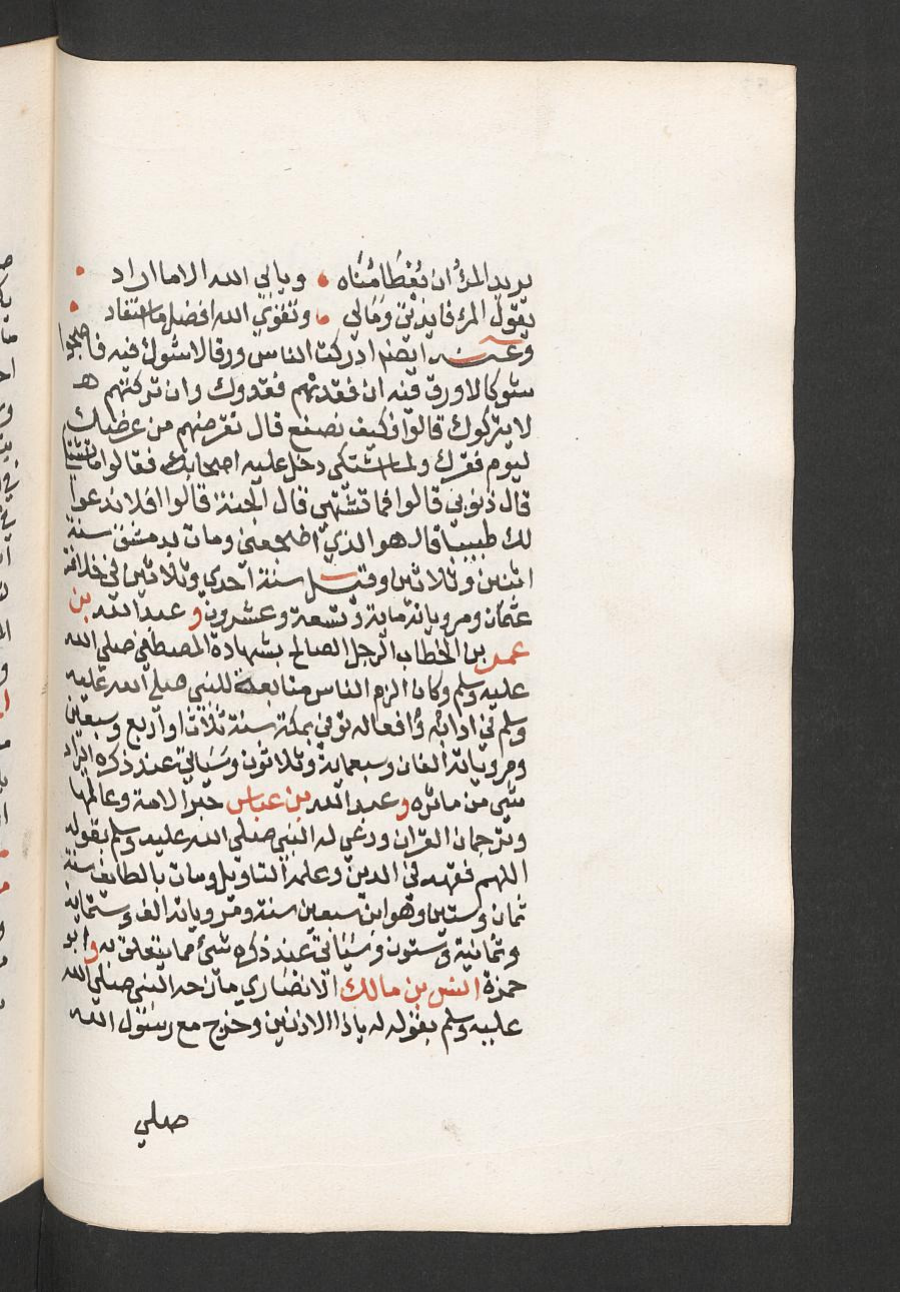 يريد المرؤ ان يُعْطَا مُنَاه • ويابي الله الا ما اراد •
يقول المرء فايدتي ومالي • وتقوي الله افضل ما استفاد •
وعنه ايضا ادركت الناس ورقا لا شوك فيه فاصبحوا
شوكا لا ورق فيه ان فقدتهم فقدوك وان تركتهم
لا يتركوك قالوا فكيف نصنع قال تقرضهم من عرضك
ليوم فقرك ولما اشتكي دخل عليه اصحابه فقالوا ما تشتكي
قال ذنوبي قالوا فما تشتهي قال الجنة قالوا افلا ندعوا
لك طبيبا قال هو الذي اضجعني ومات بدمشق سنة
اثنين وثلاثين وقيل سنة احدي وثلاثين في خلافة
عثمان ومروياته ماية وتسعة وعشرون و عبد الله بن
عمر بن الخطاب الرجل الصالح بشهادة المصطفي صلي الله
عليه وسلم وكان الزم الناس متابعة للنبي صلي الله عليه
وسلم في ادابه وافعاله توفي بمكة سنة ثلاث او اربع وسبعين
ومروياته الفان وسبعماية وثلاثون وسياتي عند ذكره ايراد
شي من ماثره و عبد الله بن عباس حبر الامة وعالمها
وترجمان القران ودعي له النبي صلي الله عليه وسلم بقوله
اللهم فقهه في الدين وعلمه التاويل ومات بالطايف سنة
ثمان وستين وهو ابن سبعين سنة ومروياته الف وستماية
وثمانية وستون وسياتي عند ذكره شئ مما يتعلق به و ابو
حمزة انس بن مالك الانصاري مازحه النبي صلي الله
عليه وسلم بقوله له ياذا الاذنين وخرج مع رسول الله
صلي